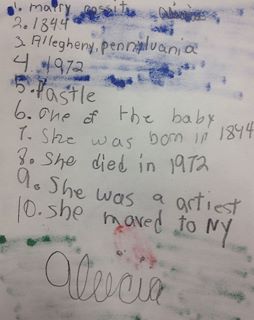 1. marry cossitt
2. 1844
3. Allegheny, pennylvania
4. 1972
5. Pastle
6. one of the baby
7. She was born in 1844
8. She died in 1972
9. She was a artiest
10. she moved to NY
Alecia